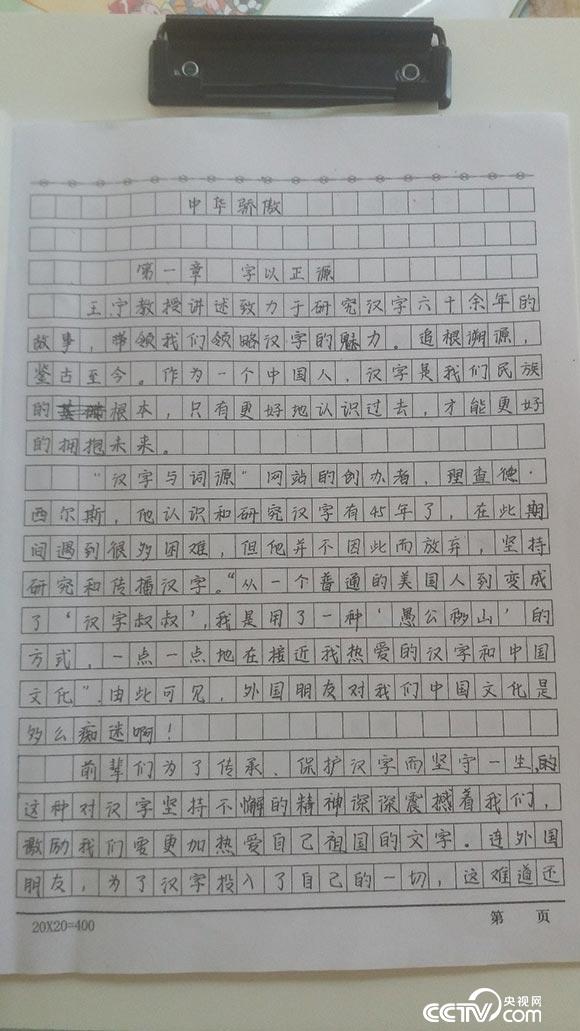 中华骄傲
第一章 字以正源
王宁教授讲述致力于研究汉字六十余年的
故事，带领我们领略汉字的魅力。追根溯源，
鉴古至今。作为一个中国人，汉字是我们民族
的根本，只有更好地认识过去，才能更好
的拥抱未来。
“汉字与词源”网站的创办者，理查德·
西尔斯，他认识和研究汉字有45年了，在此期
间遇到很多困难，但他并不因此而放弃，坚持
研究和传播汉字。“从一个普通的美国人到变成
了‘汉字叔叔’，我是用了一种‘愚公移山’的
方式，一点一点地在接近我热爱的汉字和中国
文化”.由此可见，外国朋友对我们中国文化是
多么痴迷啊！
前辈们为了传承、保护汉字而坚守一生，的
这种对汉字坚持不懈的精神深深震撼着我们，
激励我们要更加热爱自己祖国的文字。连外国
朋友，为了汉字投入了自己的一切，这难道还
20X20=400
第 页
CCTV.com 央视网